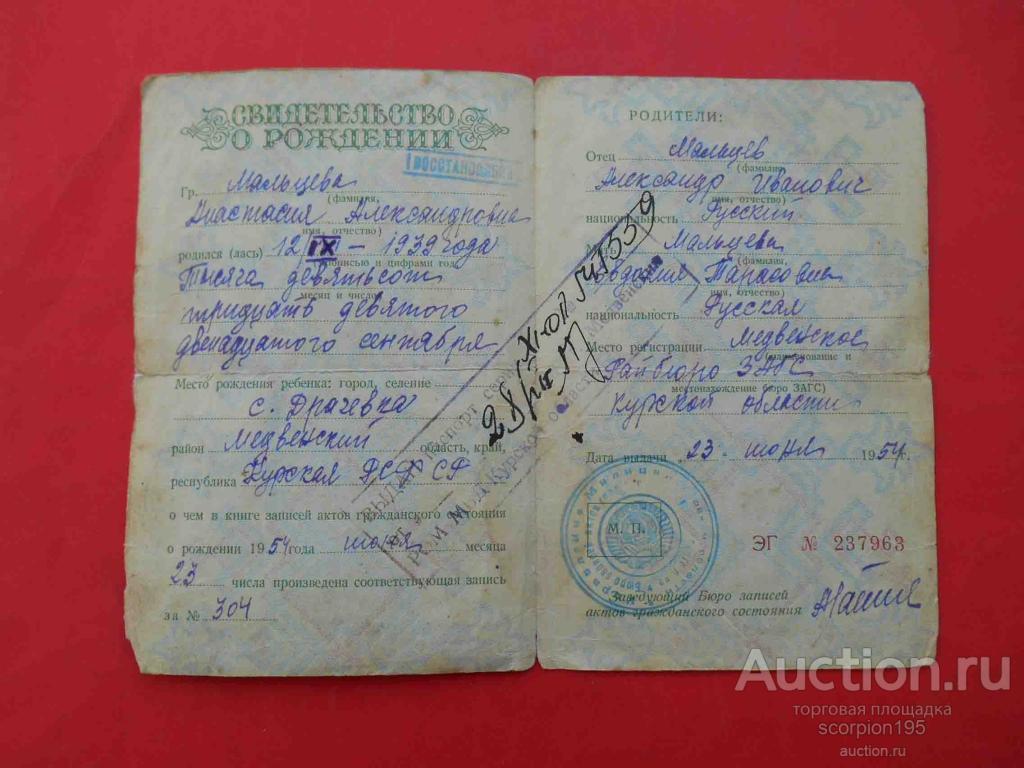 СВИДЕТЕЛЬСТВО
О РОЖДЕНИИ
ВОССТАНОВЛЕНО
Гр. Мальцева
(фамилия,
Анастасия Александровна
имя, отчество)
родился (лась) 12 IX – 1939 года
прописью и цифрами год,
Тысяча девятьсот
месяц и число)
тридцать девятого
двенадцатого сентября
Место рождения ребенка: город, селение
с. Драчевка
район Медвенский область, край,
республика Курская РСФСР
о чем в книге записей актов гражданского состояния
о рождении 1954 года июня месяца
23 числа произведена соответствующая запись
за № 304
РОДИТЕЛИ:
Отец Мальцев
(фамилия,
Александр Иванович
имя, отчество)
национальность Русский
Мать Мальцева
(фамилия,
Евдокия
имя, отчество)
национальность Русская
Место регистрации Медвенское
(наименование и
Райбюро ЗАГС
местонахождение бюро ЗАГС)
Курской области
Дата выдачи 23 июня 1954 г.
М. П.
ЭГ № 237963
Заведующий Бюро записей
актов гражданского состояния
ВЫДАН паспорт серии
Курской области
Auction.ru
торговая площадка
scorpion195
auction.ru